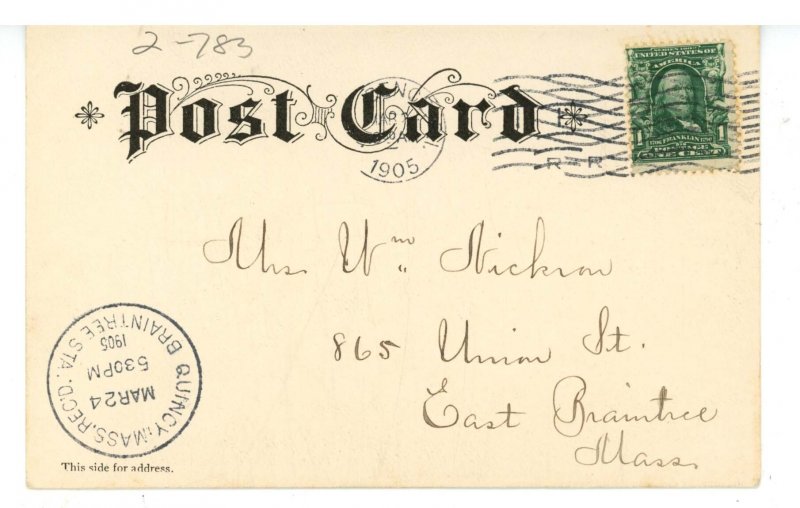 2-783
Post Card
1905
R-R
SERIES 1902
UNITED STATES OF
AMERICA
1 1706 FRANKLIN 1790 1
POSTAGE
ONE CENT
Mrs. Wm. Nickson
865 Union St.
East Braintree
Mass.
QUINCY, MASS. REC'D.
MAR 24
530PM
1905
BRAINTREE STA.
This side for address.